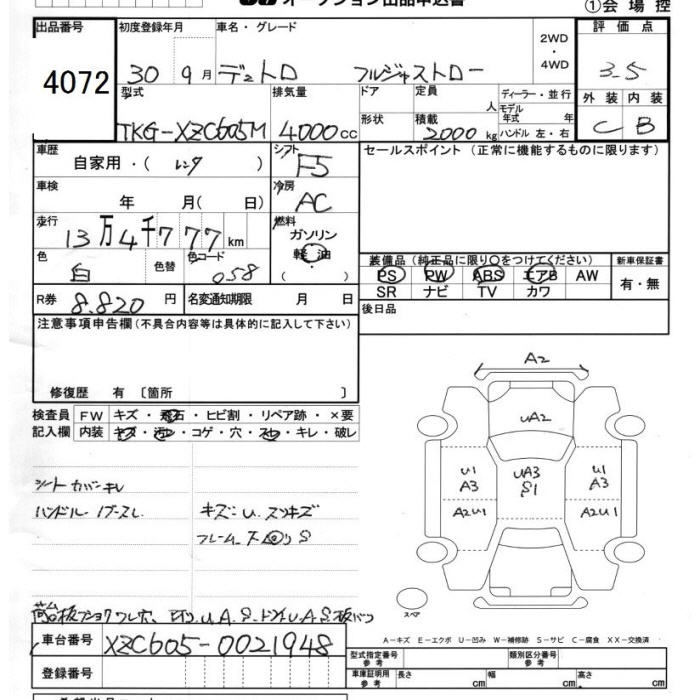 オークション出品申込書
①会場控
出品番号 初度登録年月 車名・グレード 2WD・4WD 評価点
4072 30 9月 デュトロ フルジャストロー 3.5
型式 排気量 ドア 定員 人 ディーラー・並行 外装 内装
モデル年式 年
TKG-XZC605M 4000cc 形状 積載 2000kg ハンドル 左・右 C B
車歴 自家用・( レンタ ) シフト F5 セールスポイント(正常に機能するものに限ります)
車検 年 月( 日) 冷房 AC
走行 13万4千777km 燃料 ガソリン 軽油 ( )
色 白 色替 色コード 058
装備品(純正品に限り○をつけてください) 新車保証書
PS PW ABS エアB AW 有・無
SR ナビ TV カワ
R券 8,820円 名変通知期限 月 日 後日品
注意事項申告欄(不具合内容等は具体的に記入して下さい)
修復歴 有 〔箇所 〕
検査員 FW キズ・飛石・ヒビ割・リペア跡・×要
記入欄 内装 キズ・汚レ・コゲ・穴・スレ・キレ・破レ
A2
UA2
U1 A3 UA3 S1 U1 A3
A2U1 A2U1
シートカバーキレ
ハンドル
キズ U. スリキズ
フレーム S
スペア
A-キズ E-エクボ U-凹み W-補修跡 S-サビ C-腐食 XX-交換済
車台番号 XZC605-0021948
型式指定番号 参考 類別区分番号 参考
登録番号 車庫証明用 参考 長さ cm 幅 cm 高さ cm